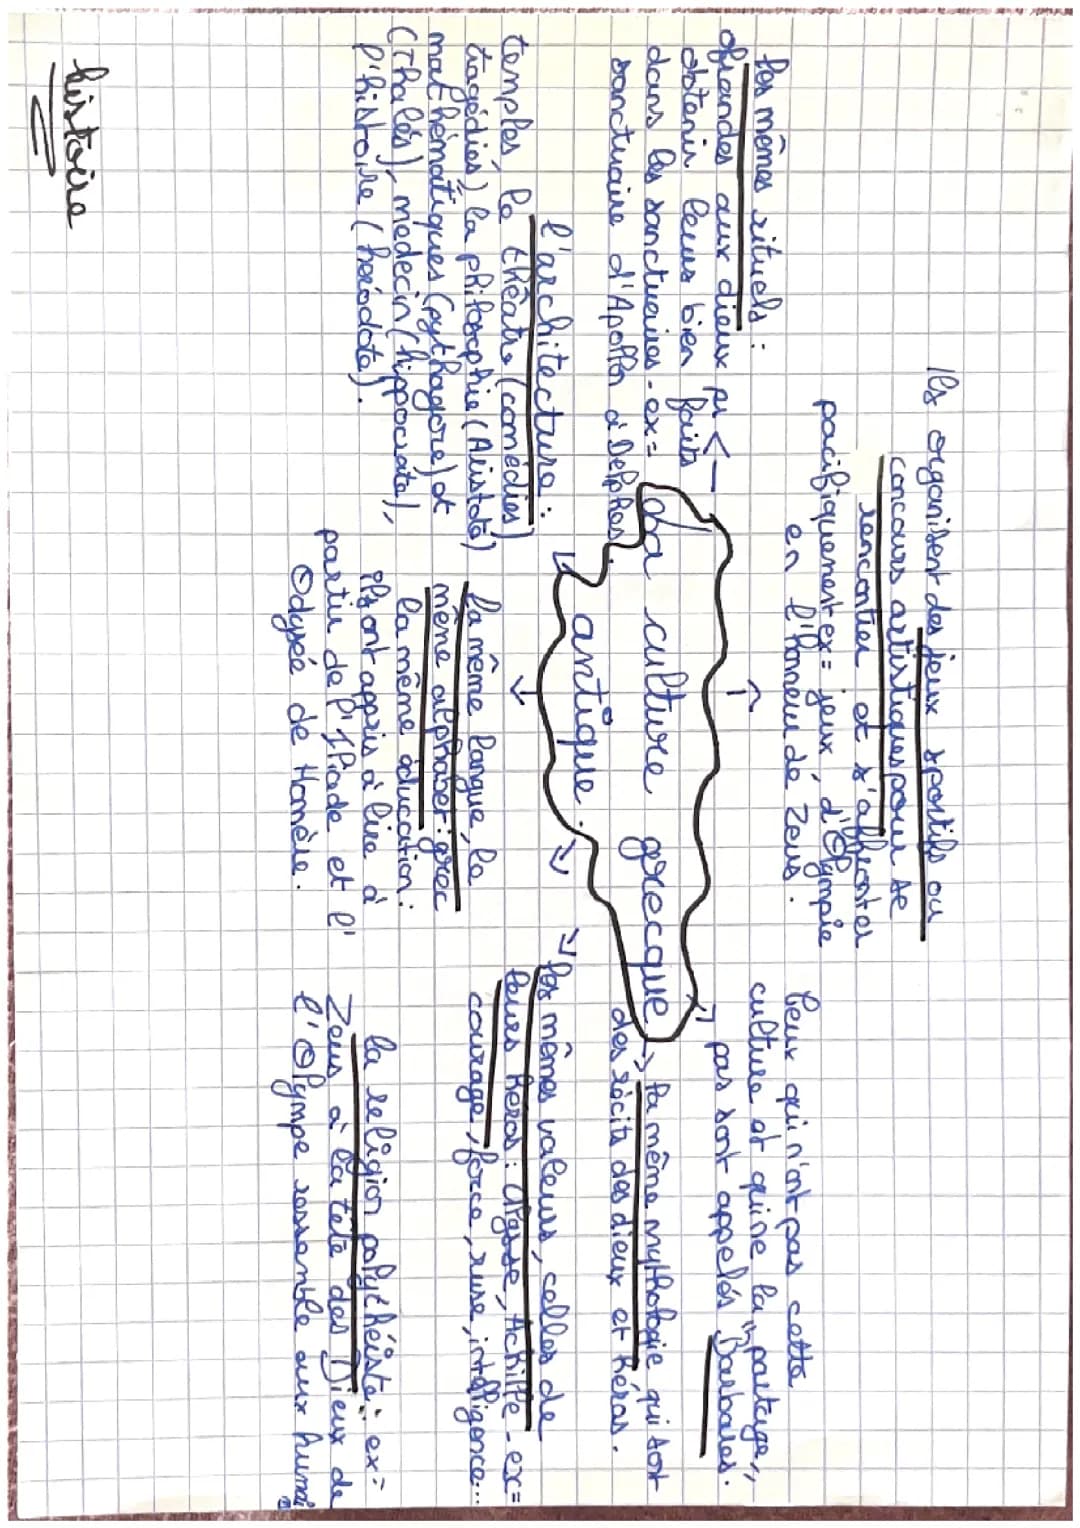 histoire
Ils organisent des jeux sportifs ou
concours artistiques pour se
rencontrer et s'affronter
pacifiquement ex = jeux d'Olympie
en l'honeur de Zeus.
les mêmes rituels :
ofrandes aux dieux pr
obtenir leurs bien faits
dans les sanctuaires - ex =
sanctuaire d'Apollon à Delphes.
La culture grecque
antique.
Ceux qui n'ont pas cette
culture et qui ne la "partage"
pas sont appelés Barbares.
la même mythologie qui sont
des récits des dieux et héros.
les mêmes valeurs, celles de
leurs héros : Ulysse, Achille - ex =
courage, force, ruse, intelligence...
l'architecture :
temples, le théatre (comédies)
tragédies) la philosophie (Aristote)
mathématiques (pythagore) et
(Thales), médecin (hippocrate),
l'histoire (hérodote).
la même langue, le
même alphabet : grec
la même éducation :
ils ont appris à lire à
partir de l'Iliade et l'
Odysée de Homère.
la religion polythéiste : ex =
Zeus à la tête des Dieux de
l'Olympe ressemble aux humai